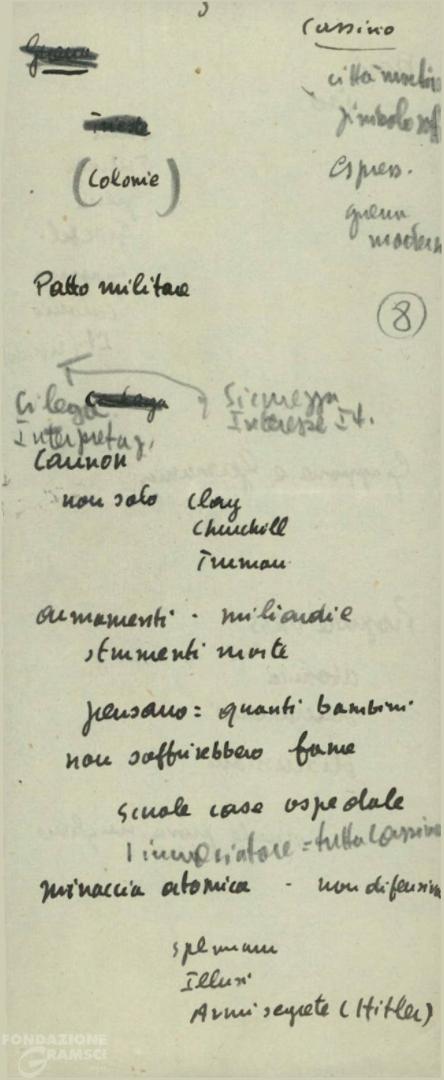 Cassino
Guerra
città martire
simbolo soff
Trieste
(Colonie)
Espress.
guerra
modern
Patto militare
8
Ci lega
Sicurezza
Interpretaz.
Interesse It.
Cannon
non solo Clay
Churchill
Truman
armamenti - miliardi e
strumenti morte
pensano: quanti bambini
non soffrirebbero fame
scuole case ospedale
1 incrociatore = tutta Cassino
minaccia atomica - non difensiva
Illusi
Armi segrete (Hitler)
FONDAZIONE
GRAMSCI